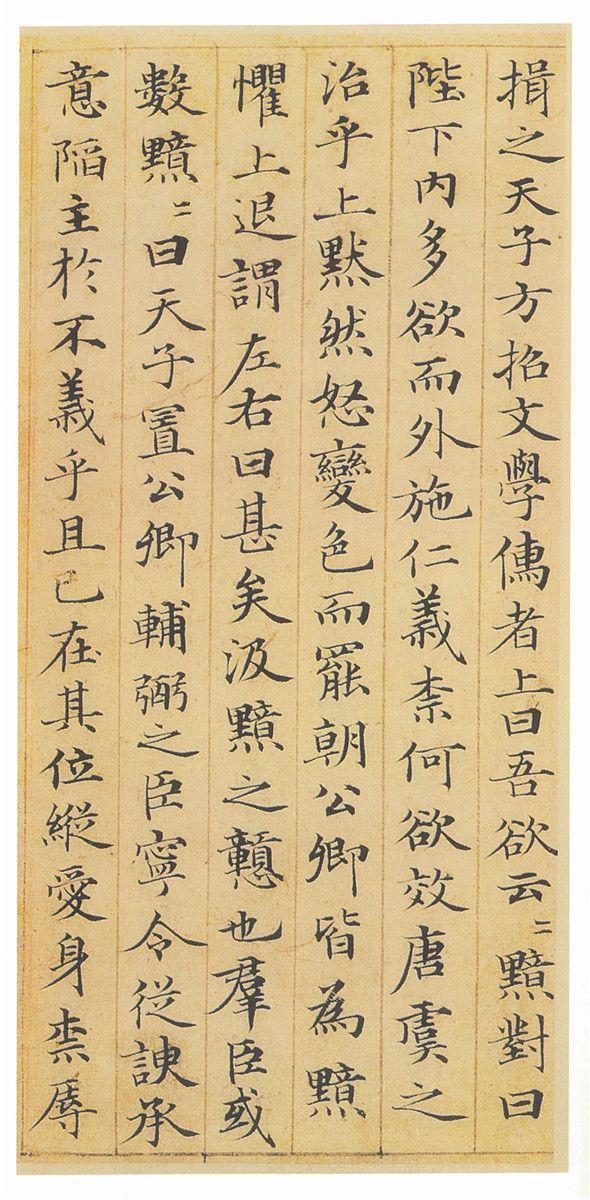 揖之天子方招文學傳者上曰吾欲云〻黯對曰
陛下內多欲而外施仁義柰何欲效唐虞之
治乎上黙然怒變色而罷朝公卿皆為黯
懼上退謂左右曰甚矣汲黯之戇也羣臣或
數黯〻曰天子置公卿輔弼之臣寧令從諛承
意陷主於不義乎且已在其位縱愛身柰辱